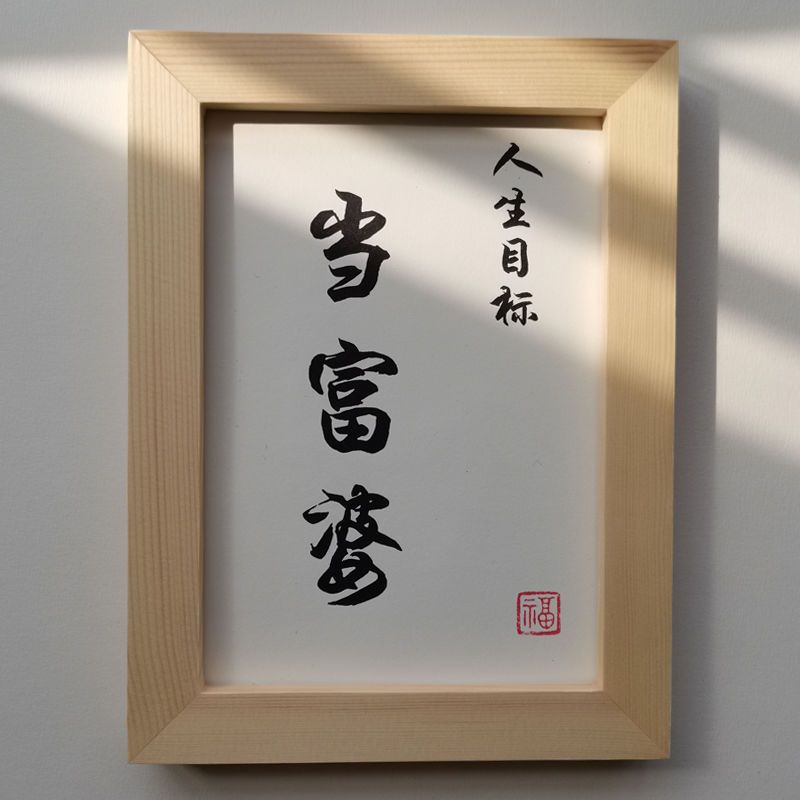 人生目标
当富婆
福